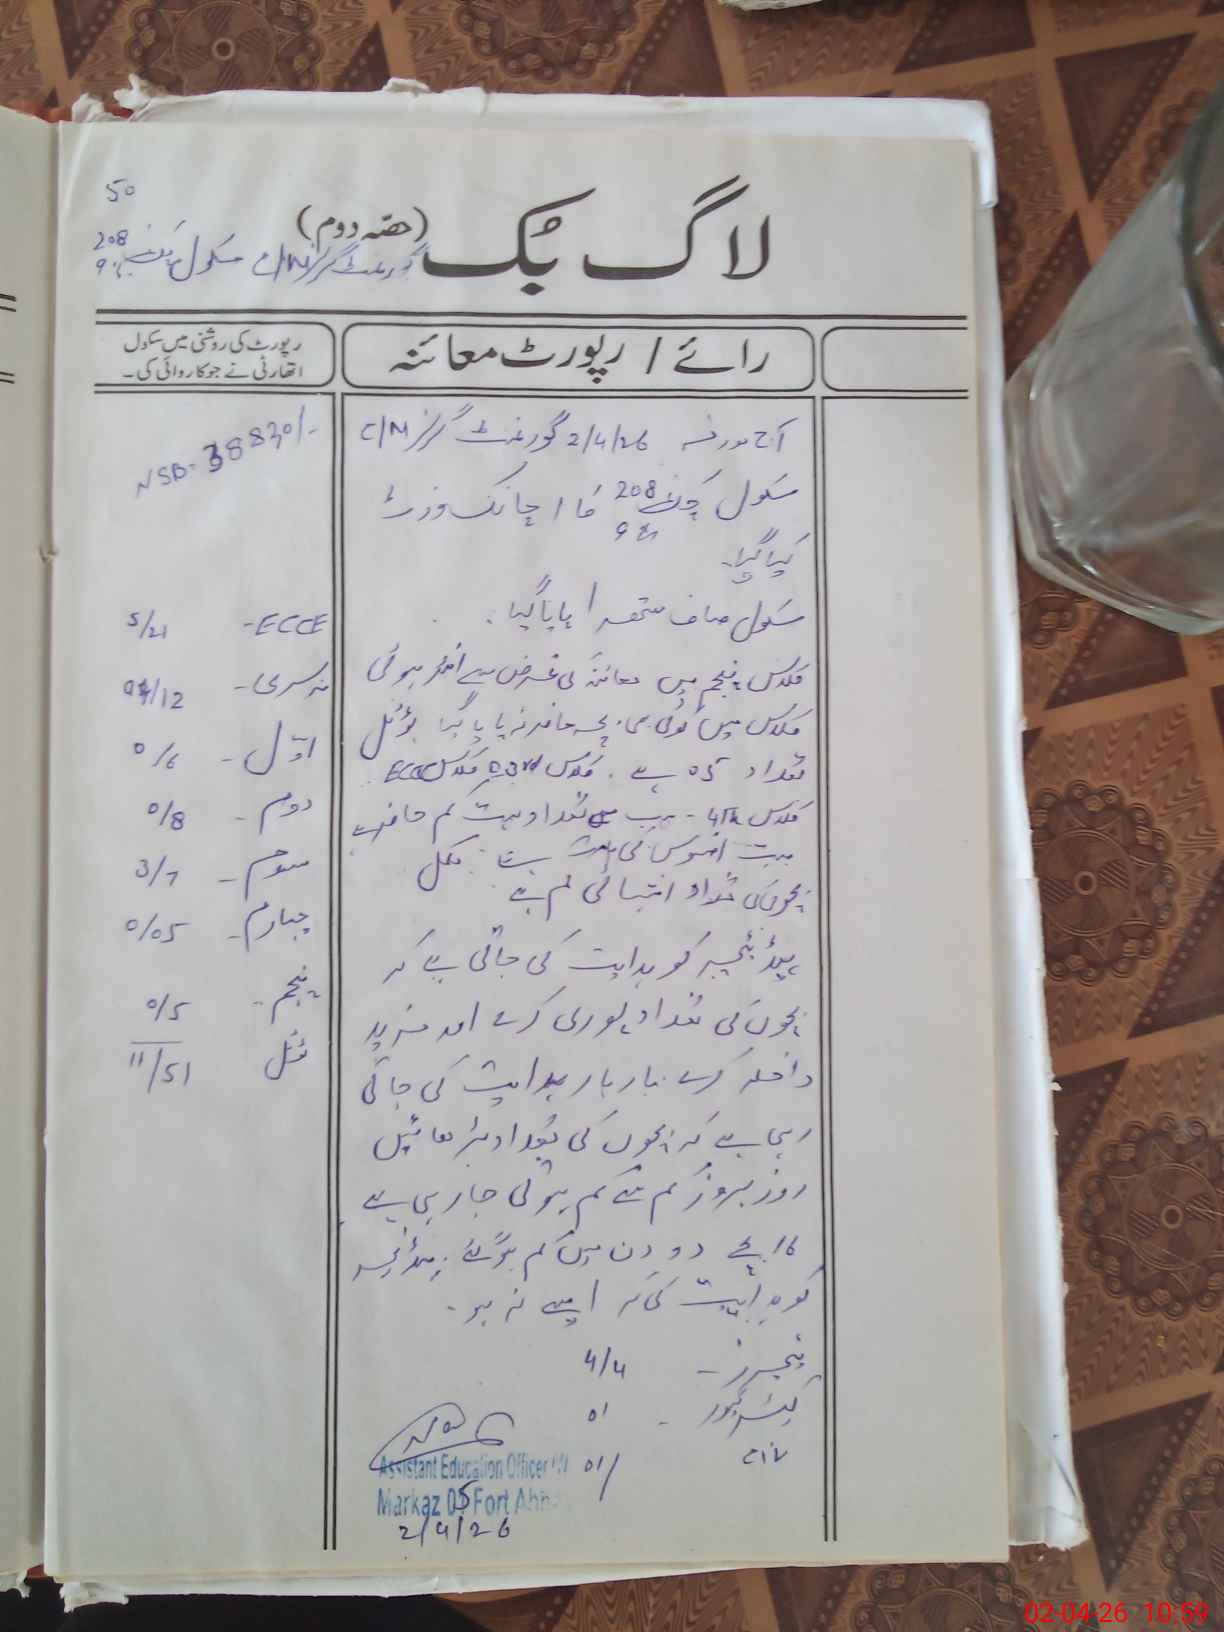 50
لاگ بُک (حصّہ دوم)
گورنمنٹ گرلز C/M سکول 208
رپورٹ کی روشنی میں سکول
اتھارٹی نے جو کاروائی کی۔
رائے / رپورٹ معائنہ
NSB- 38830/-
ECCE - 5/21
نرسری - /12
اوّل - 0/6
دوم - 0/8
سوم - 3/7
چہارم - 0/05
پنجم - 0/5
ٹوٹل 11/51
آج مورخہ 2/4/26 گورنمنٹ گرلز C/M
سکول 208 کا اچانک وزٹ
کیا گیا۔
سکول صاف ستھرا پایا گیا۔
کلاس پنجم میں معائنہ کی غرض سے ہوئی
کلاس میں کوئی بھی بچہ حاضر نہ پایا گیا ٹوٹل
تعداد 05 ہے۔ کلاس 3rd کلاس ECCE
کلاس 4th - سب میں تعداد بہت کم حاضر ہے
بہت افسوس کی بات ہے۔ کل
بچوں کی تعداد انتہائی کم ہے
ہیڈ ٹیچر کو ہدایت کی جاتی ہے کہ
بچوں کی تعداد پوری کرے اور مزید
داخلہ کرے۔ بار بار ہدایت کی جاتی
رہی ہے کہ بچوں کی تعداد
روز بروز کم سے کم ہوتی جا رہی ہے
16 بچے دو دن میں کم ہو گئے۔ ہیڈ ٹیچر
کو ہدایت کی کہ ایسے نہ ہو۔
ٹیچرز - 4/4
کیئر گیور - 01
01/
Assistant Education Officer
Markaz 05 Fort Abb
2/4/26
02-04-26 10:59